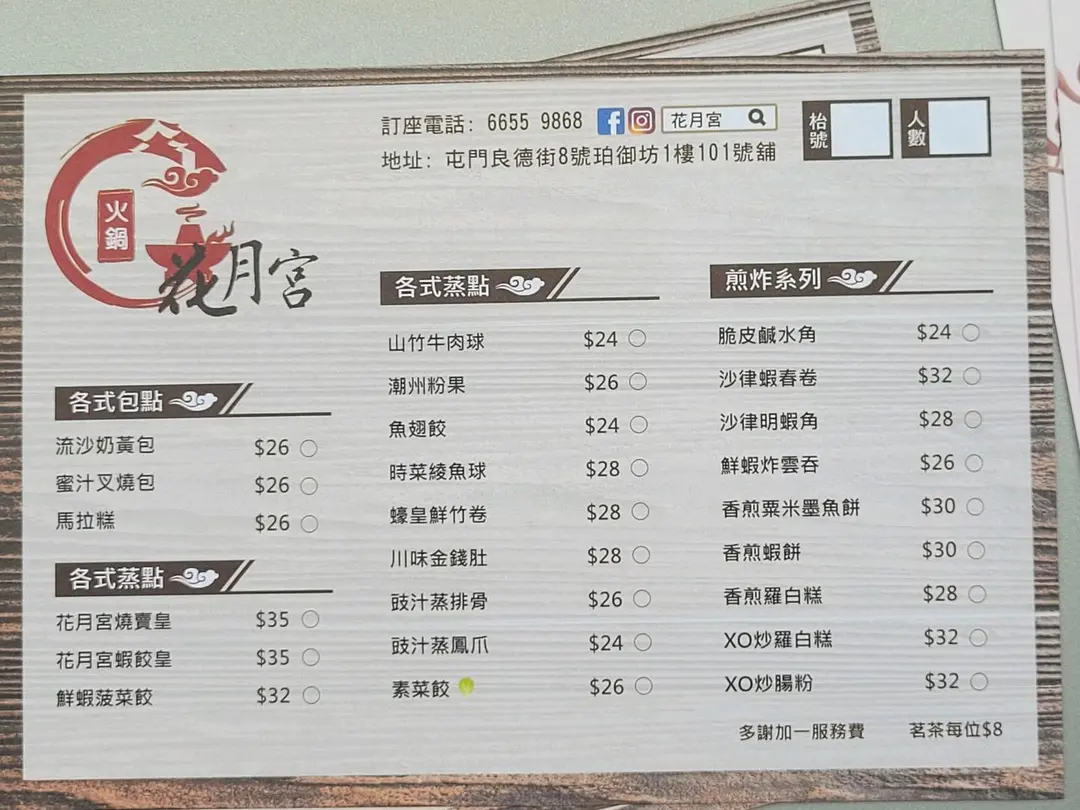 訂座電話: 6655 9868 花月宮
地址: 屯門良德街8號珀御坊1樓101號舖
枱號
人數
火鍋
花月宮
各式包點
流沙奶黃包 $26
蜜汁叉燒包 $26
馬拉糕 $26
各式蒸點
花月宮燒賣皇 $35
花月宮蝦餃皇 $35
鮮蝦菠菜餃 $32
各式蒸點
山竹牛肉球 $24
潮州粉果 $26
魚翅餃 $24
時菜綾魚球 $28
蠔皇鮮竹卷 $28
川味金錢肚 $28
豉汁蒸排骨 $26
豉汁蒸鳳爪 $24
素菜餃 $26
煎炸系列
脆皮鹹水角 $24
沙律蝦春卷 $32
沙律明蝦角 $28
鮮蝦炸雲吞 $26
香煎粟米墨魚餅 $30
香煎蝦餅 $30
香煎羅白糕 $28
XO炒羅白糕 $32
XO炒腸粉 $32
多謝加一服務費 茗茶每位$8